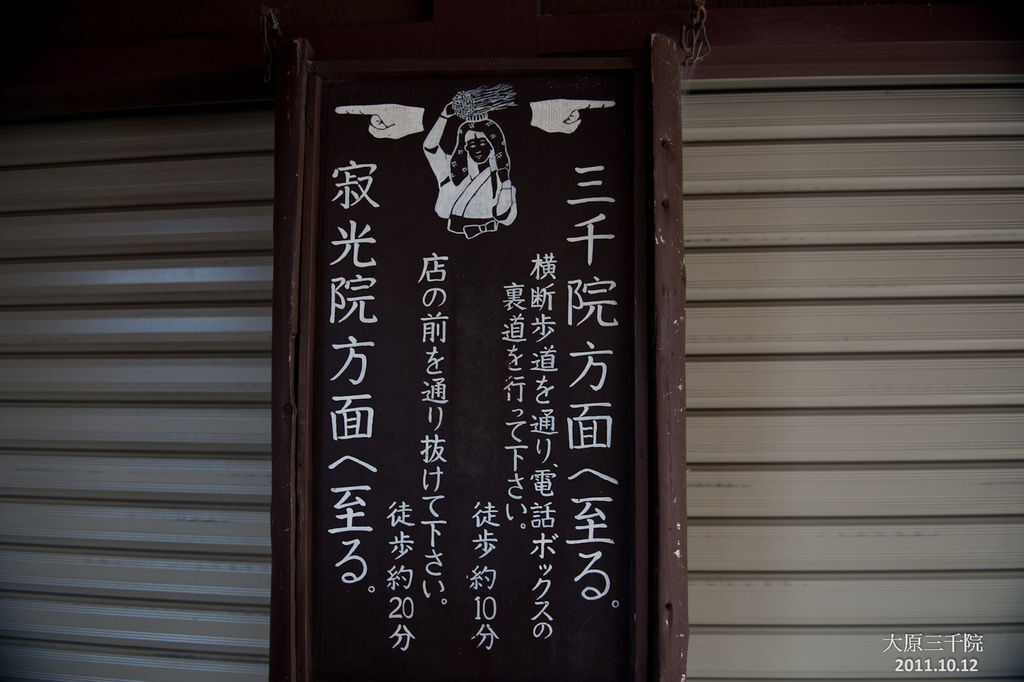 三千院方面へ至る。
横断歩道を通り、電話ボックスの
裏道を行って下さい。
徒歩約10分
店の前を通り抜けて下さい。
徒歩約20分
寂光院方面へ至る。
大原三千院
2011.10.12